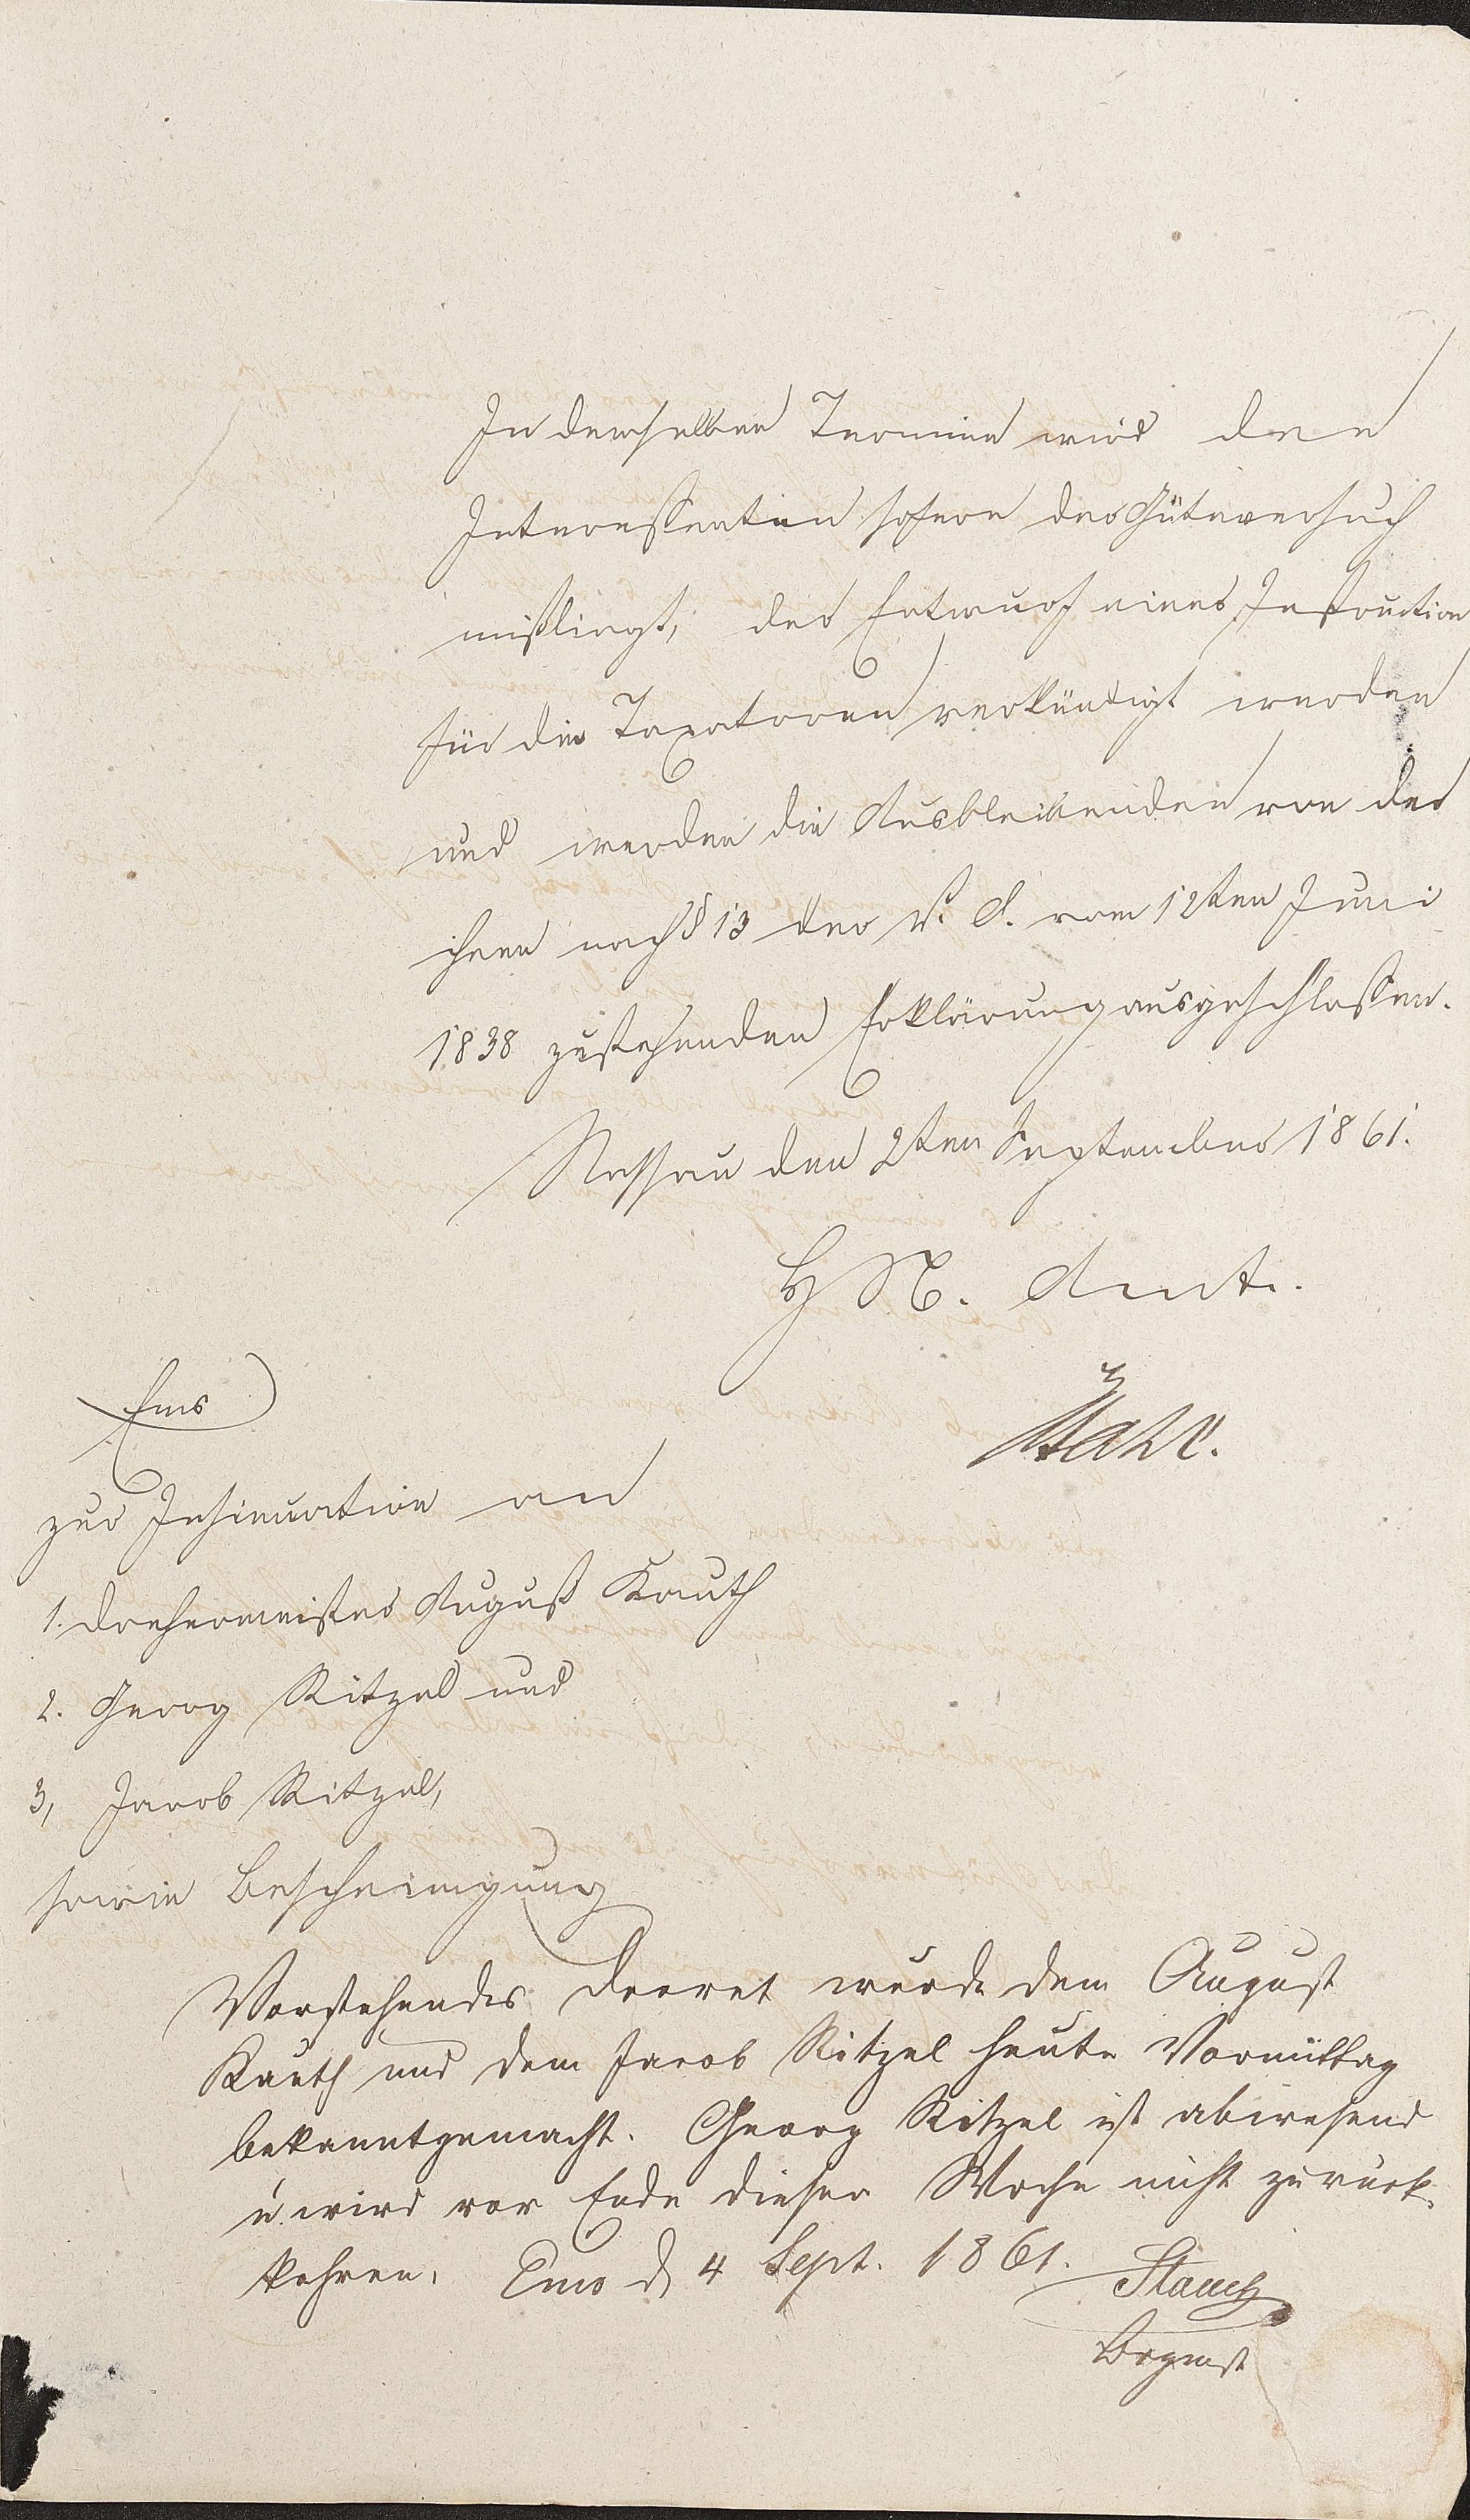 In demselben Termine wird den
Interessenten sofern der Güteversuch
mißlingt, der Entwurf einer Instruction
für die Taxatoren verkündigt werden
und werden die Ausbleibenden von der
ihnen nach § 13 der V. O. vom 12ten Juni
1838 zustehenden Erklärung ausgeschlossen.
Nassau den 2ten September 1861.
H N. Amt.
Ems
zur Insinuation an
1. Drehermeister August Kauth
2. Georg Ritzel und
3, Jacob Ritzel,
sowie Bescheinigung
Vorstehendes Decret wurde dem August
Kauth und dem Jacob Ritzel heute Vormittag
bekanntgemacht. Georg Ritzel ist abwesend
u. wird vor Ende dieser Woche nicht zurück-
kehren. Ems d 4 Sept. 1861.
Brgmst